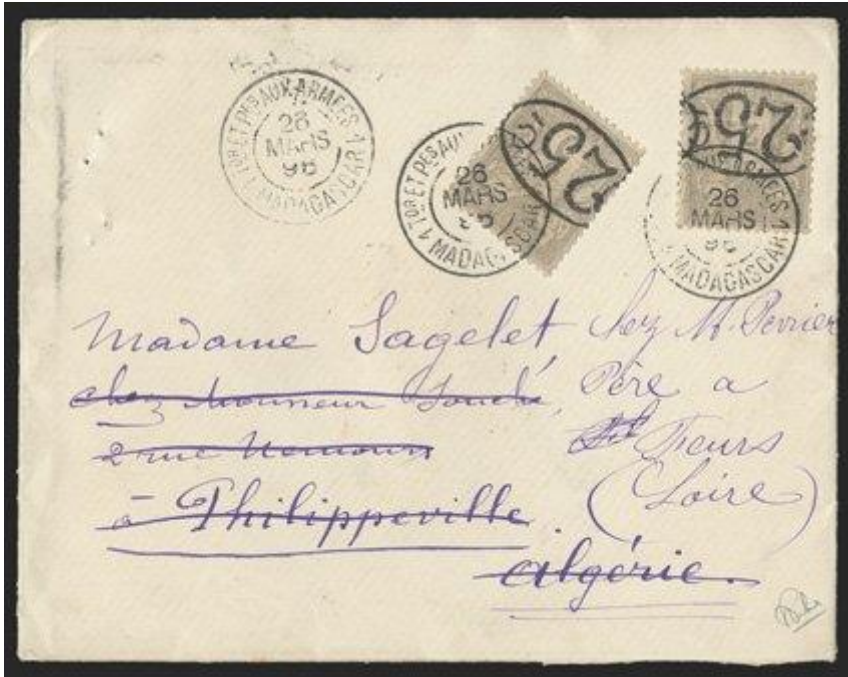 TOR ET PES AUX ARMEES 1
26
MARS
96
MADAGASCAR
1 TOR ET PES AU
26
MARS
96
MADAGASCAR
25
25
AUX ARMEES 1
26
MARS
96
MADAGASCAR
Madame Sagelet chez M. Perrier
chez Monsieur Souché, Père a
2 rue Nemours Feurs
à Philippeville (Loire)
Algérie.